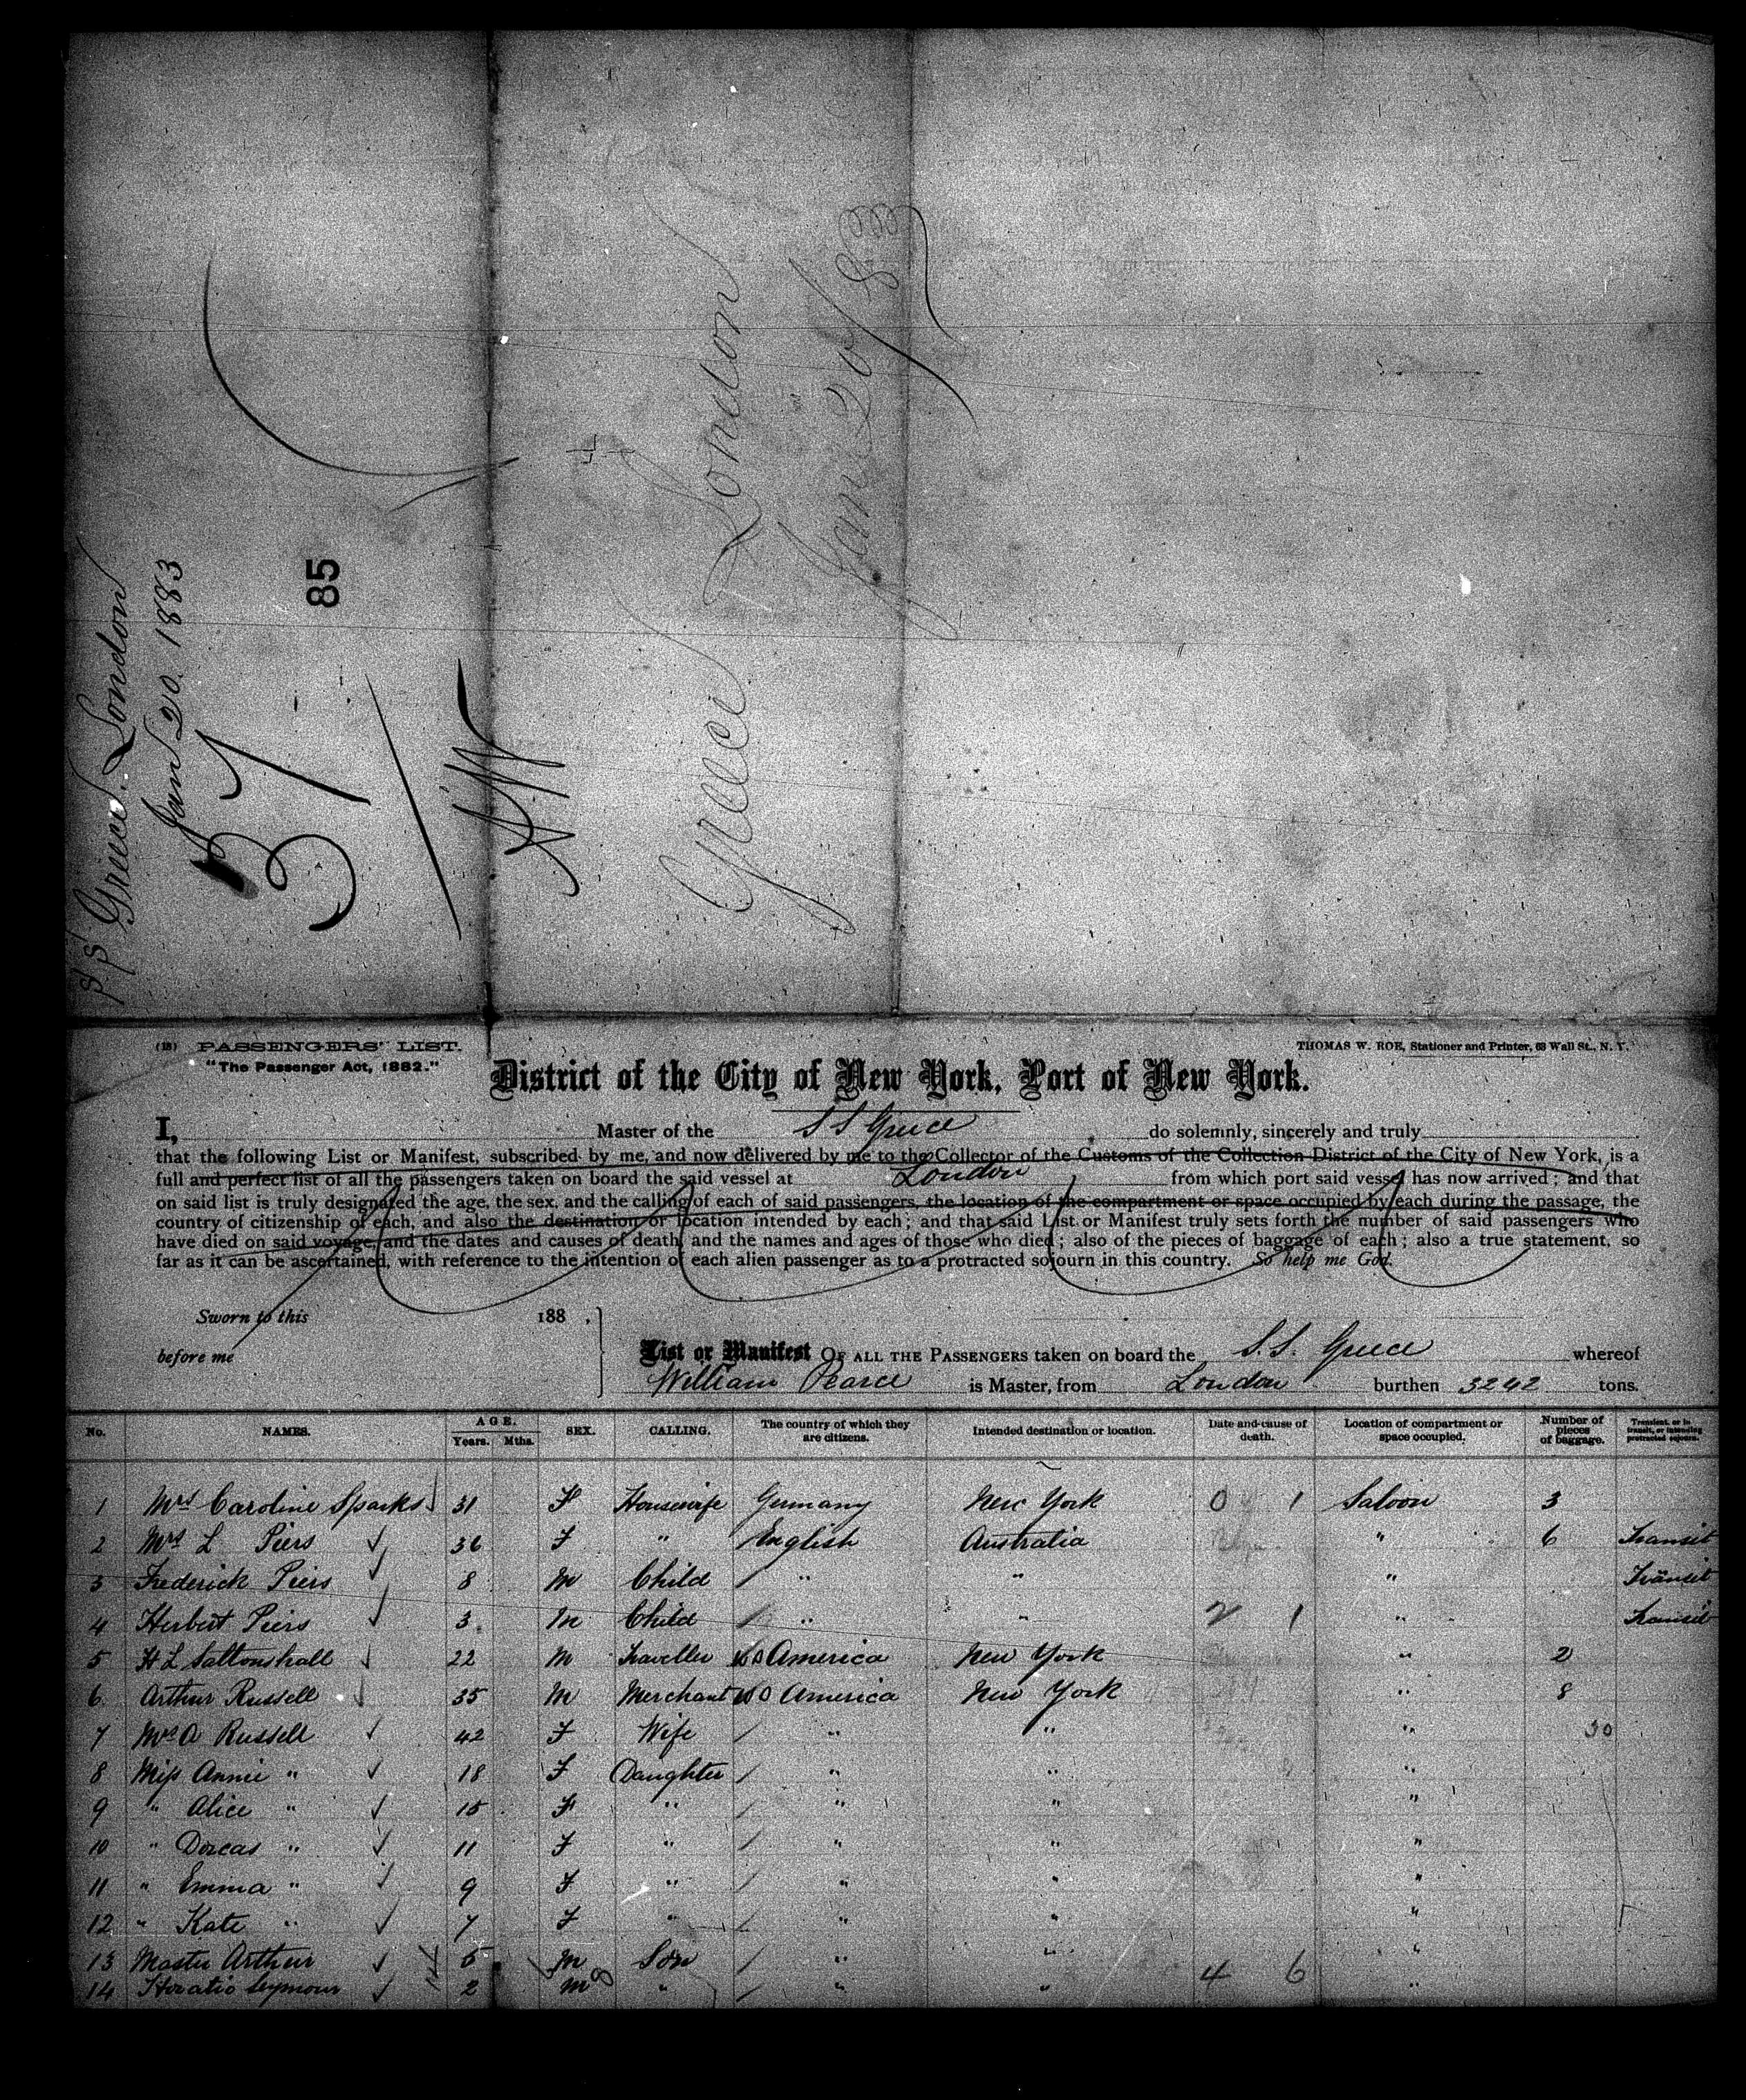 SS Greece. London
Jan 20. 1883
85
31
Greece London
Jan 20/83
(13) PASSENGERS' LIST.
THOMAS W. ROE, Stationer and Printer, 63 Wall St., N. Y.
"The Passenger Act, 1882."
District of the City of New York, Port of New York.
I, Master of the S S Greece do solemnly, sincerely and truly
that the following List or Manifest, subscribed by me, and now delivered by me to the Collector of the Customs of the Collection District of the City of New York, is a
full and perfect list of all the passengers taken on board the said vessel at London from which port said vessel has now arrived; and that
on said list is truly designated the age, the sex, and the calling of each of said passengers, the location of the compartment or space occupied by each during the passage, the
country of citizenship of each, and also the destination or location intended by each; and that said List or Manifest truly sets forth the number of said passengers who
have died on said voyage, and the dates and causes of death, and the names and ages of those who died; also of the pieces of baggage of each; also a true statement, so
far as it can be ascertained, with reference to the intention of each alien passenger as to a protracted sojourn in this country. So help me God.
Sworn to this 188 ,
before me
List or Manifest OF ALL THE PASSENGERS taken on board the S.S. Greece whereof
William Pearce is Master, from London burthen 3242 tons.
No. NAMES. AGE. Years. Mths. SEX. CALLING. The country of which they are citizens. Intended destination or location. Date and cause of death. Location of compartment or space occupied. Number of pieces of baggage. Transient, or in transit, or intending protracted sojourn.
1 Mrs Caroline Sparks 31 F Housewife Germany New York 0 1 Saloon 3
2 Mrs L Piers 36 F " English Australia " 6 Transit
3 Frederick Piers 8 M Child " " " Transit
4 Herbert Piers 3 M Child " " 2 1 " Transit
5 H L Saltonshall 22 M Traveller US America New York " 2
6 Arthur Russell 35 M Merchant US America New York " 8
7 Mrs A Russell 42 F Wife " " " 30
8 Miss Annie " 18 F Daughter " " "
9 " Alice " 15 F " " " "
10 " Dorcas " 11 F " " " "
11 " Emma " 9 F " " " "
12 " Kate " 7 F " " " "
13 Master Arthur 5 M Son " " "
14 Horatio Seymour 2 M " " " 4 6 "